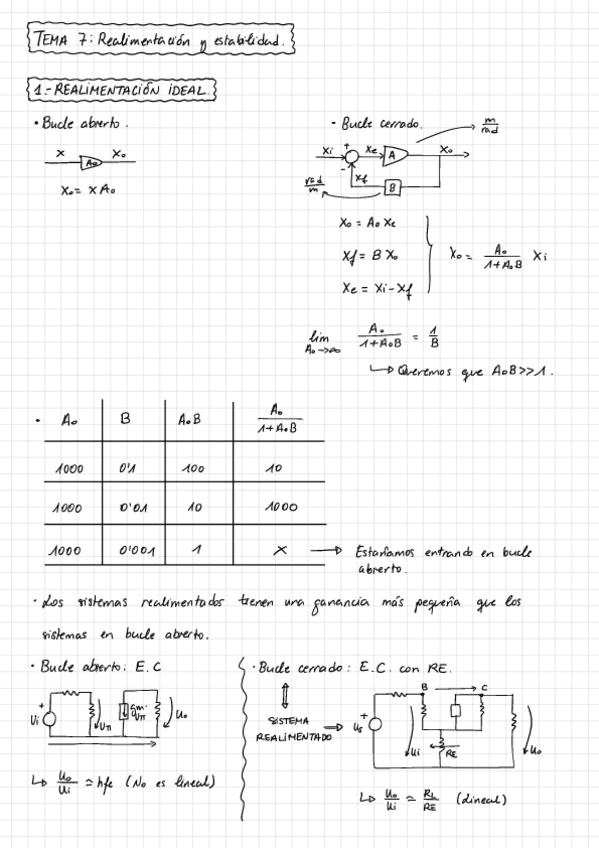 TEMA 7: Realimentación y estabilidad.
1.- REALIMENTACIÓN IDEAL.
• Bucle abierto.
x Ao Xo
Xo = x Ao
- Bucle cerrado.
m/rad
Xi + Xe A Xo
-
Xf
rad/m
B
Xo = Ao Xe
Xf = B Xo
Xe = Xi - Xf
Xo = Ao/(1+AoB) Xi
lim Ao→∞ Ao/(1+AoB) = 1/B
↳ Queremos que AoB>>1.
• Ao B AoB Ao/(1+AoB)
1000 0'1 100 10
1000 0'01 10 1000
1000 0'001 1 X → Estaríamos entrando en bucle
abierto.
• Los sistemas realimentados tienen una ganancia más pequeña que los
sistemas en bucle abierto.
• Bucle abierto: E.C
+ Ui Uπ gm·Uπ Uo
↳ Uo/Ui ≃ hfe (No es lineal)
• Bucle cerrado: E.C. con RE.
SISTEMA
REALIMENTADO →
+ Us B → C
Ui RE Uo
↳ Uo/Ui ≃ RL/RE (Lineal)